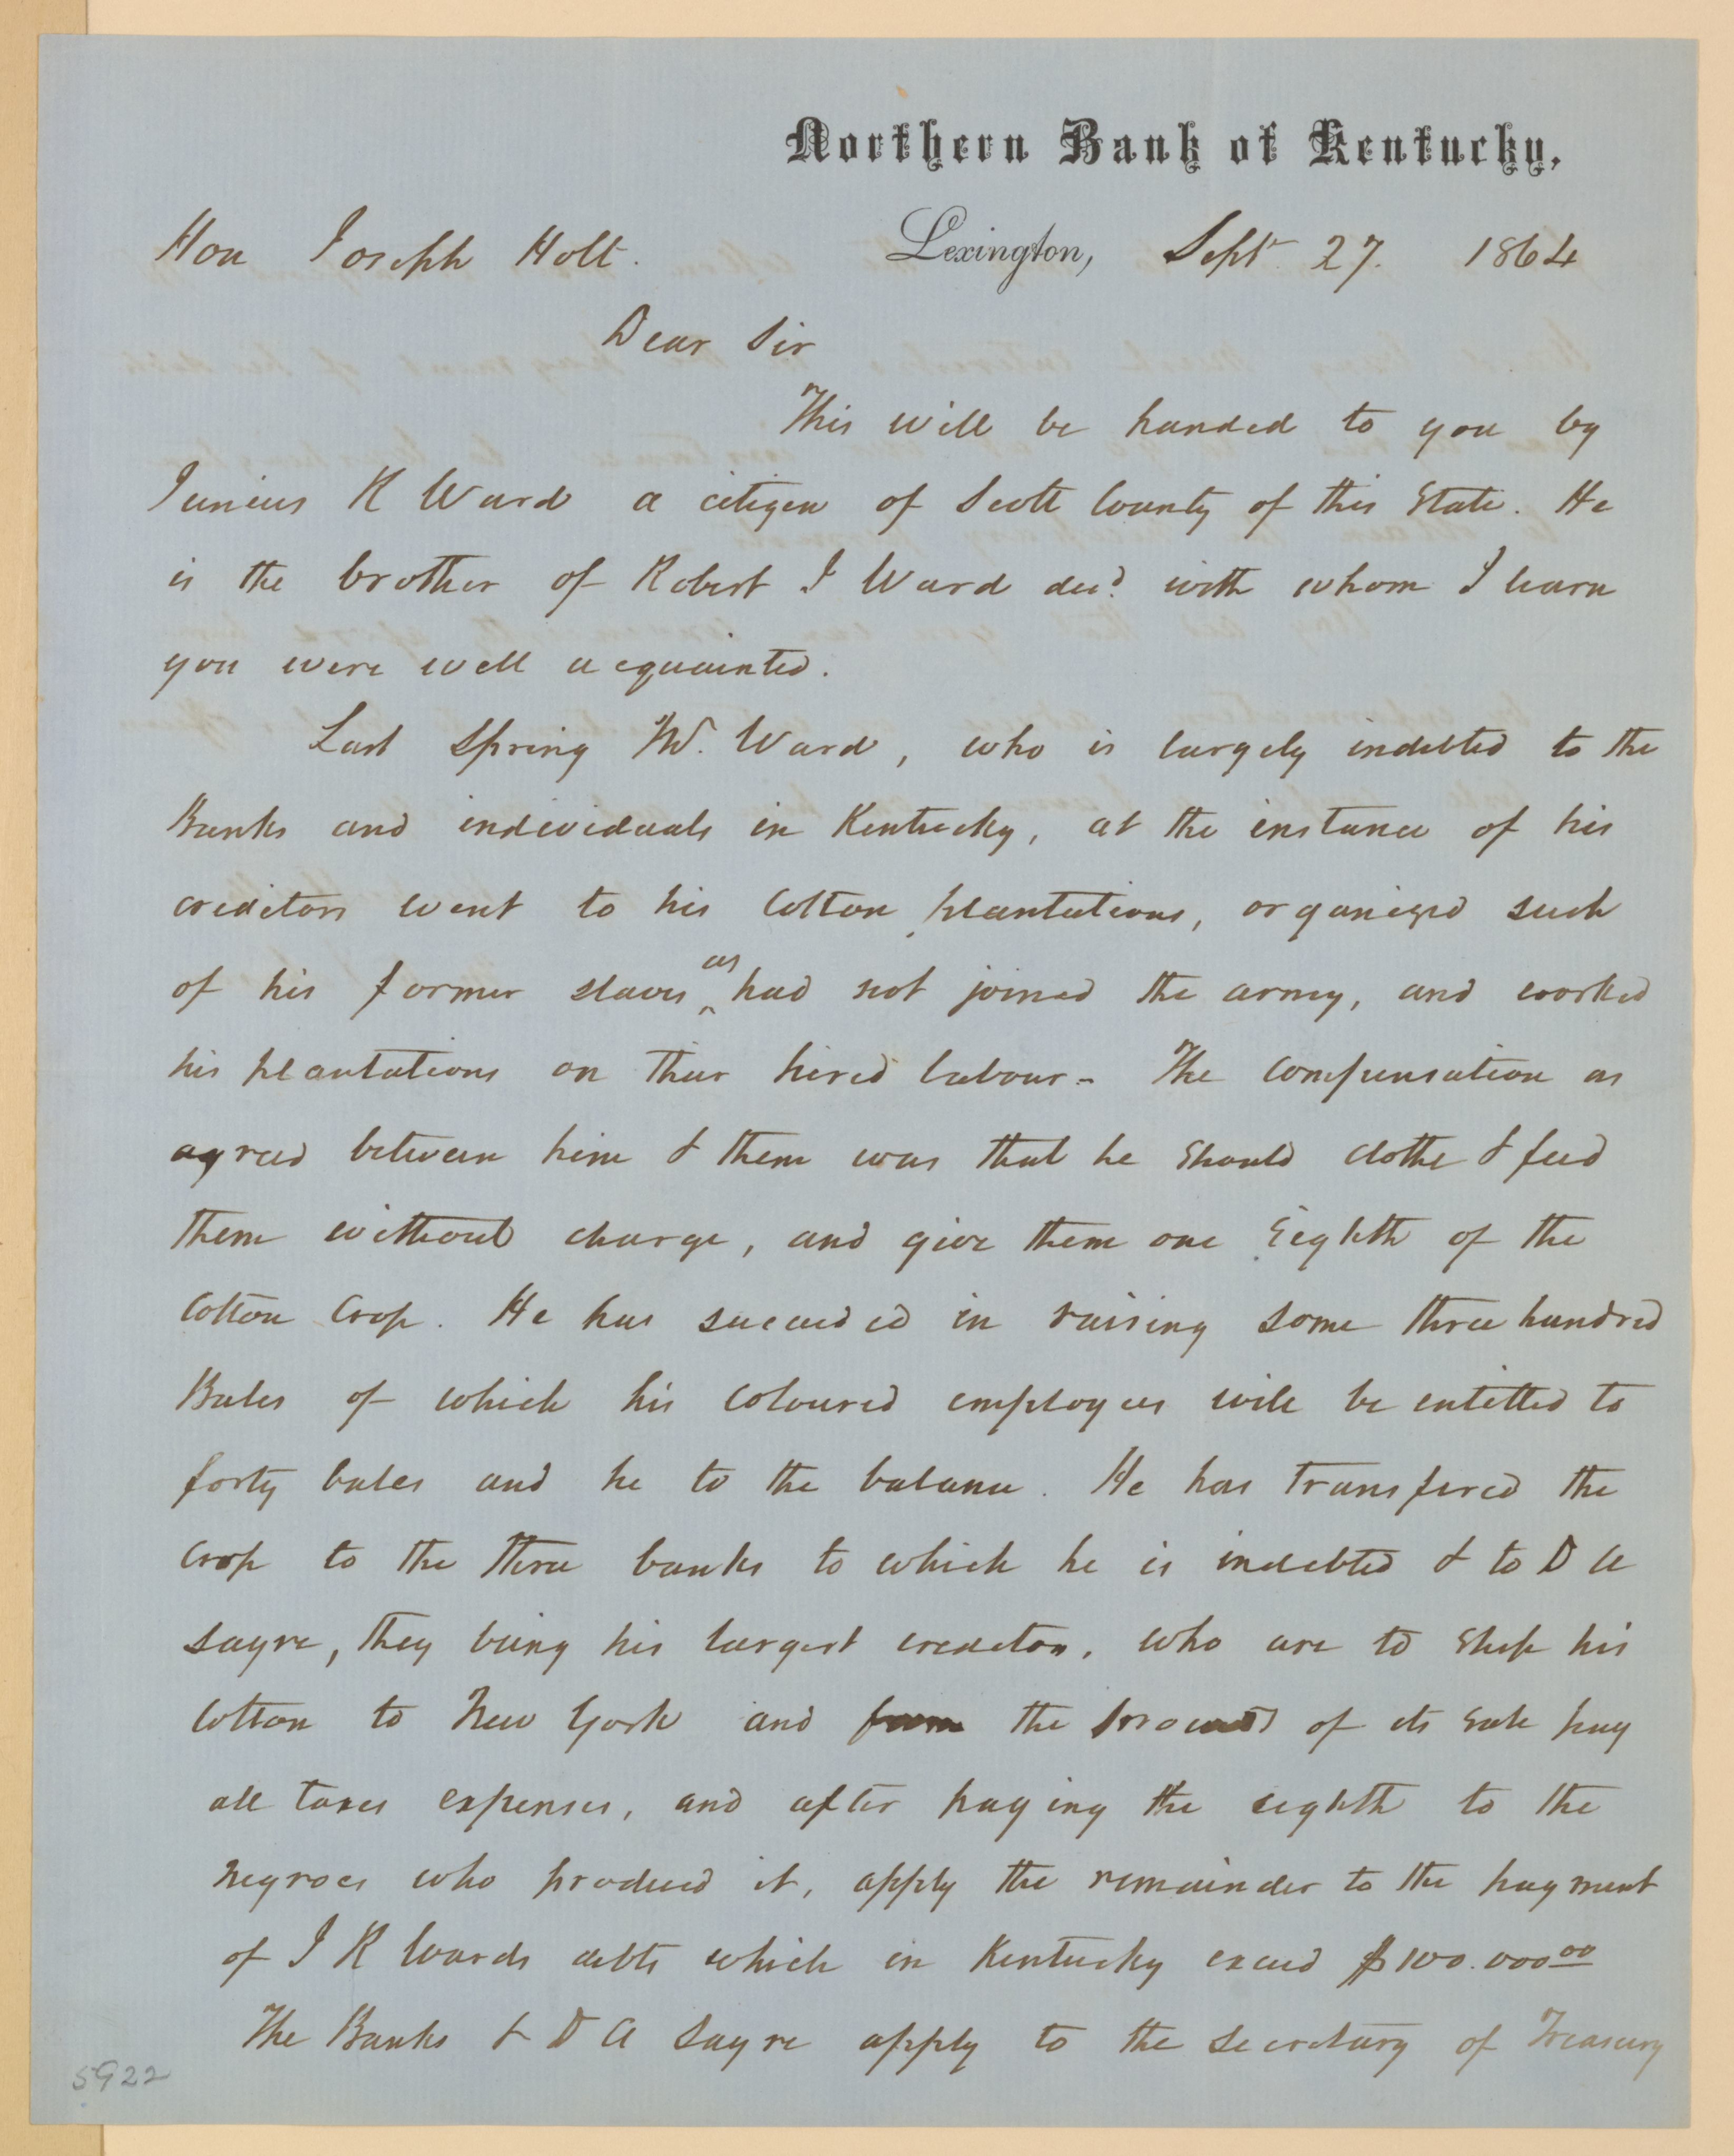 Northern Bank of Kentucky,
Hon Joseph Holt. Lexington, Sept 27. 1864
Dear Sir
This will be handed to you by
Junius R Ward a citizen of Scott County of this State. He
is the brother of Robert J Ward decd with whom I learn
you were well acquainted.
Last Spring Mr. Ward, who is largely indebted to the
Banks and individuals in Kentucky, at the instance of his
creditors went to his Cotton plantations, organized such
of his former slaves as had not joined the army, and worked
his plantations on their hired labour - The compensation as
agreed between him & them was that he should clothe & feed
them without charge, and give them one Eighth of the
Cotton Crop. He has succeeded in raising some three hundred
Bales of which his coloured employees will be entitled to
forty bales and he to the balance. He has transfered the
crop to the three banks to which he is indebted & to D A
Sayre, they being his largest creditors, who are to Ship his
Cotton to New York and from the proceeds of its sale pay
all taxes expenses, and after paying the eighth to the
negroes who produced it, apply the remainder to the payment
of J R Wards debts which in Kentucky exceed $100.000 00
The Banks & D A Sayre apply to the Secretary of Treasury
5922